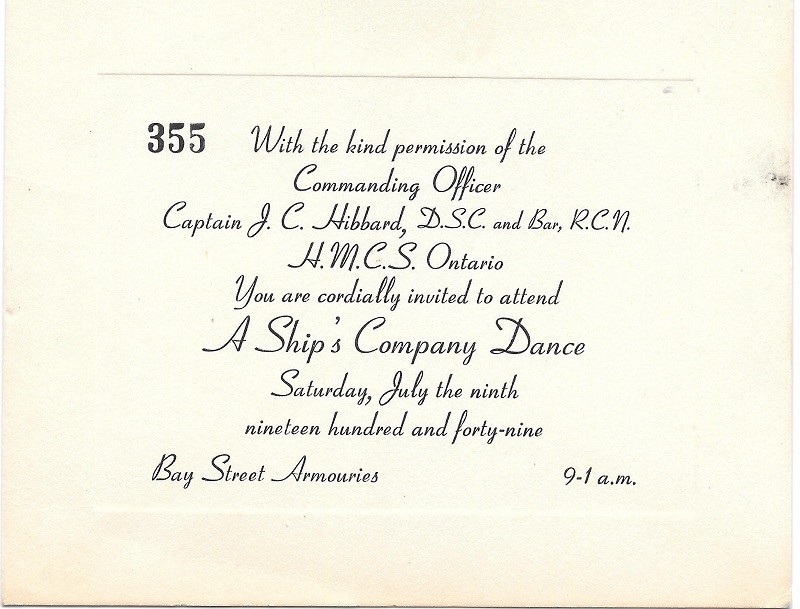 355 With the kind permission of the
Commanding Officer
Captain J. C. Hibbard, D.S.C. and Bar, R.C.N.
H.M.C.S. Ontario
You are cordially invited to attend
A Ship's Company Dance
Saturday, July the ninth
nineteen hundred and forty-nine
Bay Street Armouries 9-1 a.m.